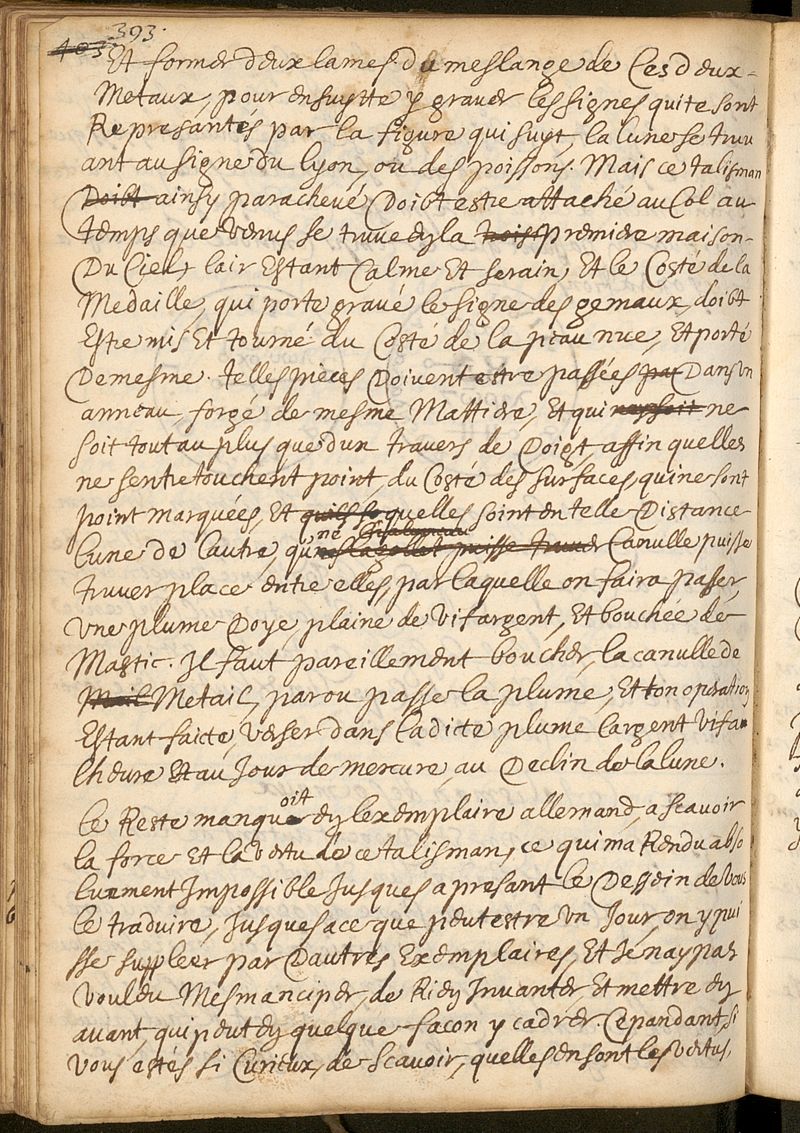 393.
403
Et former deux lames du meslange de Ces deux-
Metaux, pour ensuytte y graver les signes qui te sont
Representes par la figure qui suyt, la lune se truv
ant au signe du lyon, ou des poissons. Mais ce talisman
Doibt ainsy parachevé Doibt estre attaché au Col au
temps que venus se truve ey la trois premiere maison-
Du Ciel, lair Estant Calme Et serain, Et le Costé de la
Medaille, qui porte gravé le signe des gemaux, doibt
Estre mis Et tourné du Costé de la peau nue, Et porté
De mesme. telles pieces Doivent estre passées par Dans vn
anneau, forgé de mesme Mattiere, Et qui ne
soit tout au plus que dun travers de Doigt, affin quelles
ne sentretouchent point du Costé des surfaces qui ne sont
point marquées, Et quelles soint en telle Distance
lune de lautre, qu'une Canulle puisse
truver place entre elles, par laquelle on faira passer
vne plume Doye, plaine de vif argent, Et bouchée de
Mastic. Il faut pareillement boucher, la canulle de
Metail, par ou passe la plume, Et ton operation
Estant faicte, verser dans ladicte plume largent vif a
lheure Et au Jour de mercure, au Declin de la lune.
Le Reste manquoit ey lexemplaire allemand, a scavoir
la force Et la vertu de ce talisman, ce qui ma Rendu abso
luement Impossible Jusques a presant le Dessein de vous
le traduire, Jusques a ce que peut estre vn Jour, on y pui
sse suppleer par Dautres Exemplaires, Et Je nay pas
voulu Mesmanciper, de Riey Invanter, Et mettre ey
avant, qui peut ey quelque facon y cadrer. Cepandant, si
vous estes si Curieux, de scavoir, quelles en sont les vertus,